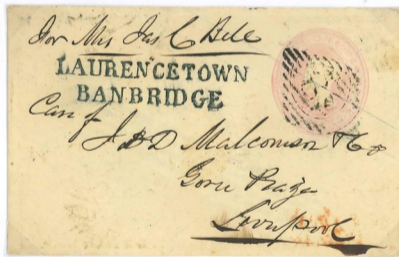 For Mrs Jas C Bell
LAURENCETOWN
BANBRIDGE
Care of
J & D Malcomson & Co
Goree Piazza
Liverpool